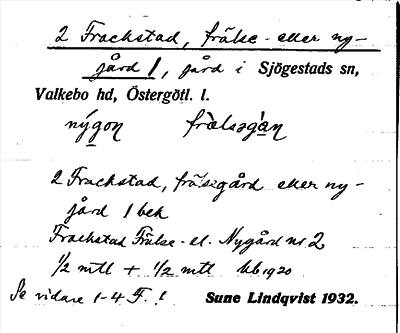 2 Frackstad, frälse- eller ny-
gård 1, gård i Sjögestads sn,
Valkebo hd, Östergötl. l.
nýgon frálsgàn
2 Frackstad, frälsegård eller ny-
gård 1 bek
Frackstad Frälse- el. Nygård nr 2
1/2 mtl + 1/2 mtl Jb 1920
Se vidare 1-4 F. !
Sune Lindqvist 1932.